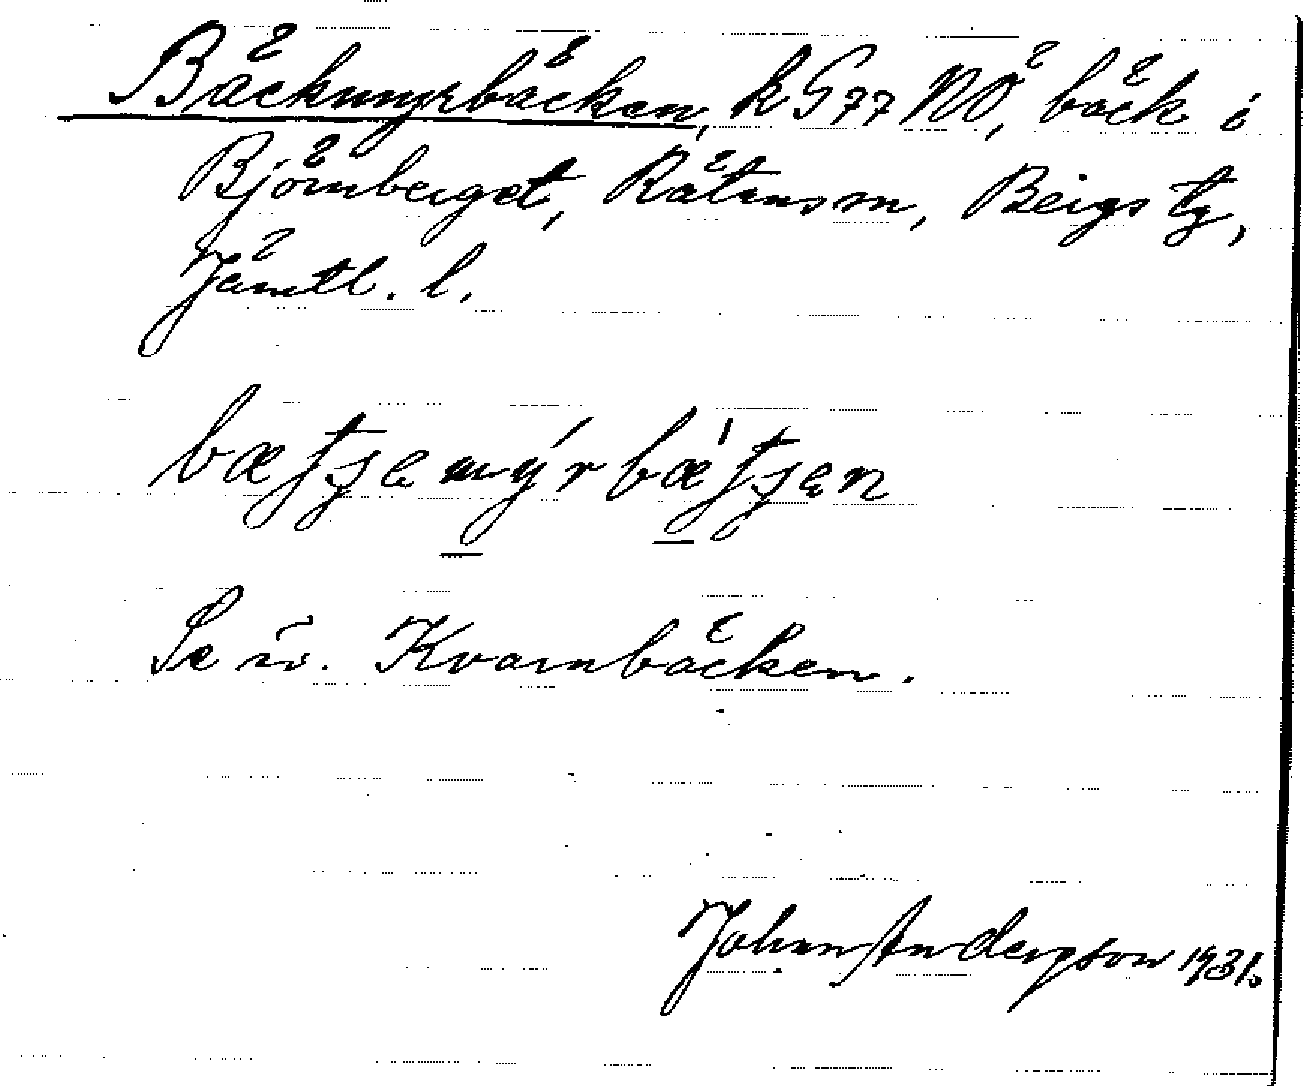 Bäckmyrbäcken, k G 77 NÖ, bäck i
Björnberget, Rätans sn, Bergs tg,
Jämtl. l.
Se u. Kvarnbäcken.
Johan Andersson 1931.